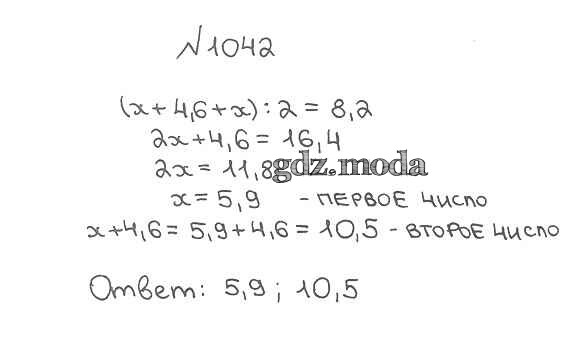 №1042
(x+4,6+x):2=8,2
2x+4,6=16,4
2x=11,8
gdz.moda
x=5,9 - ПЕРВОЕ ЧИСЛО
x+4,6=5,9+4,6=10,5 - ВТОРОЕ ЧИСЛО
Ответ: 5,9; 10,5